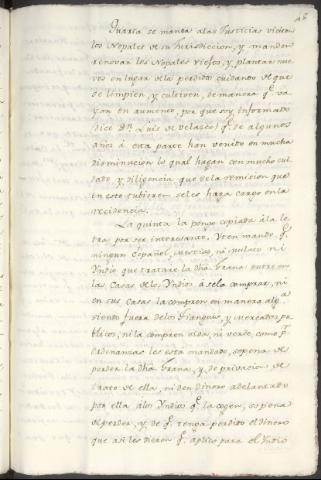 46
Quarta se manda a las Justicias visiten
los Nopales de su Jurisdiccion, y manden
renovar los Nopales viejos, y plantar nue
vos en lugar de los perdidos cuidando de que
se limpien, y cultiven, de manera q.e va
yan en aumento, por que soy informado
dice Dn. Luis de Velasco q.e de algunos
años á esta parte han venido en mucha
disminucion lo qual hagan con mucho cui
dado, y diligencia que de la remision que
en esto tubieren se les hara cargo en la
residencia.
La quinta la pone copiada á la le
tra por ser interesante. Yten mando q.e
ningun Español, Mestizo, ni Mulato ni
Yndio que tratare la dha. grana entre en
las Casas de los Yndios á sela comprar, ni
en sus Casas la compren en manera alg.a
siendo fuera de los tianguis, y Mercados pu
blicos, ni la compren viva, ni verde, como p.r
ordenanzas les esta mandado, so pena de
perder la dha. grana, y de privacion de
trato de ella, ni den dinero adelantado
por ella á los Yndios q.e la cogen, so pena
de perder, y de q.e tenga perdido el dinero
que asi les dieren q.e aplico para el Yndio